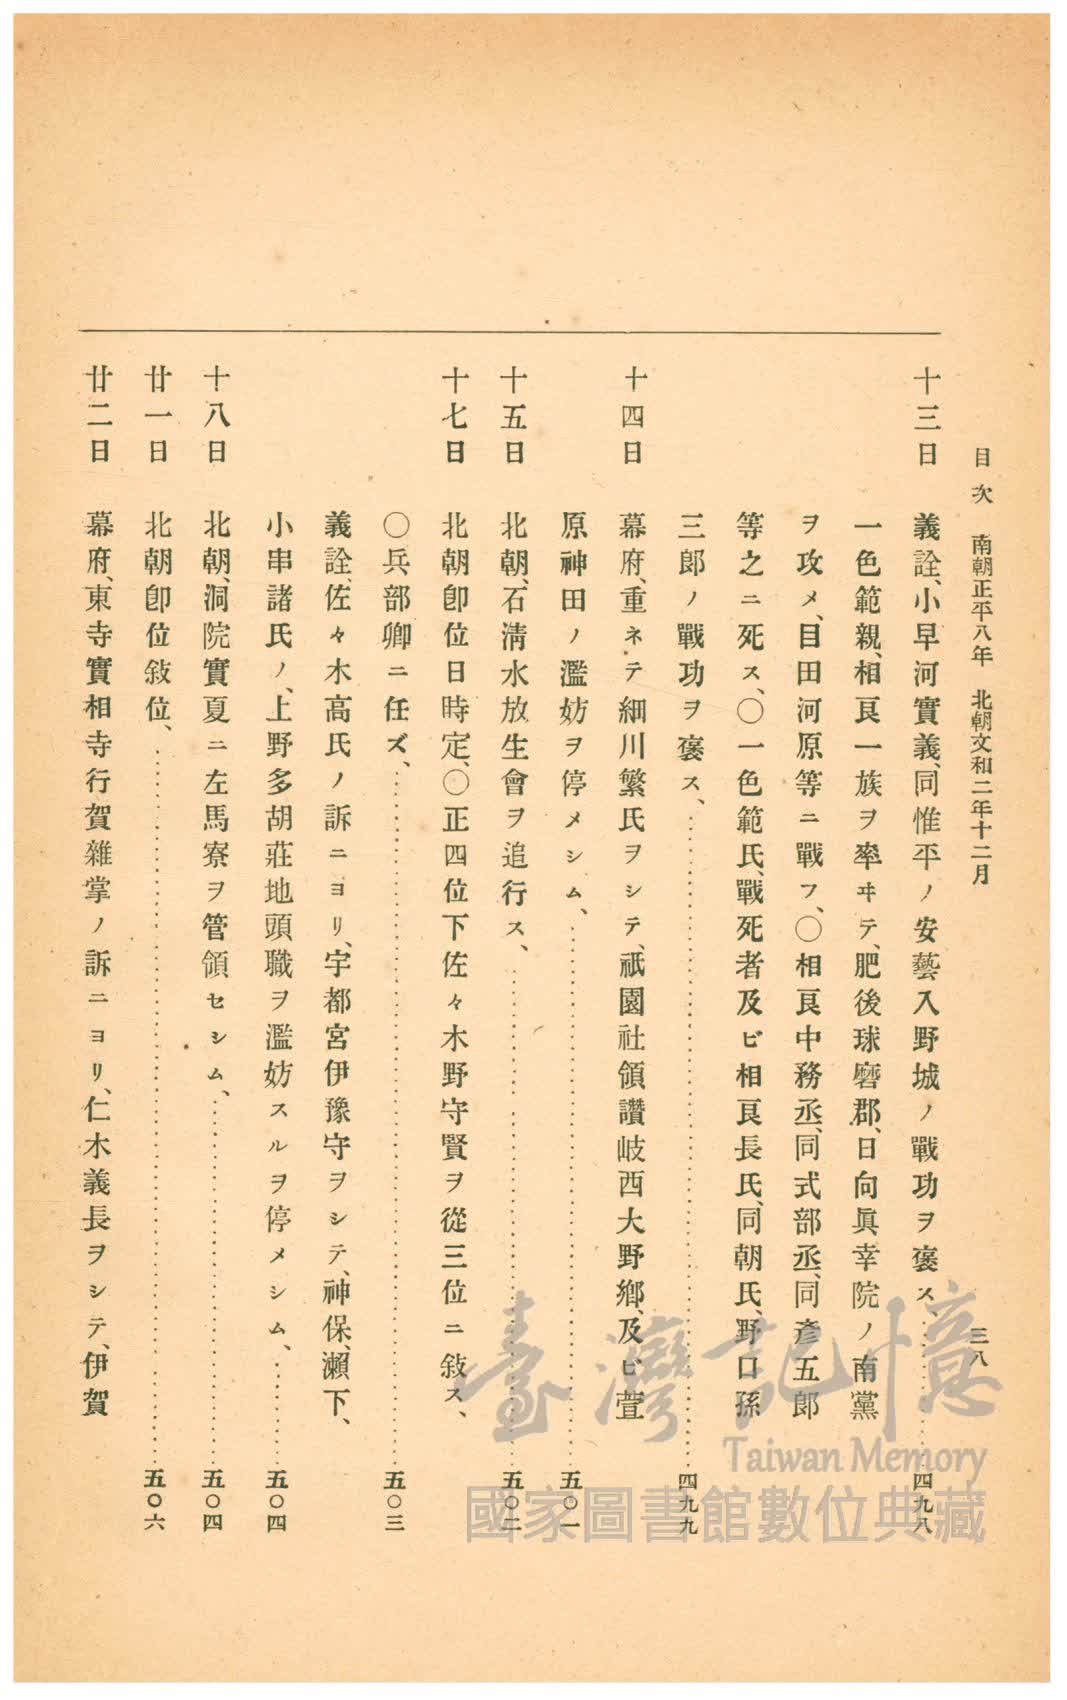 目次　南朝正平八年　北朝文和二年十二月　三八
十三日　義詮、小早河實義、同惟平ノ安藝入野城ノ戰功ヲ褒ス、……四九八
一色範親、相良一族ヲ率ヰテ、肥後球磨郡、日向眞幸院ノ南黨
ヲ攻メ、目田河原等ニ戰フ、〇相良中務丞、同式部丞、同彥五郞
等之ニ死ス、〇一色範氏、戰死者及ビ相良長氏、同朝氏、野口孫
三郞ノ戰功ヲ褒ス、……四九九
十四日　幕府、重ネテ細川繁氏ヲシテ、祇園社領讚岐西大野鄕、及ビ萱
原神田ノ濫妨ヲ停メシム、……五〇一
十五日　北朝、石淸水放生會ヲ追行ス、……五〇二
十七日　北朝卽位日時定、〇正四位下佐々木野守賢ヲ從三位ニ敍ス、
〇兵部卿ニ任ズ、……五〇三
義詮、佐々木高氏ノ訴ニヨリ、宇都宮伊豫守ヲシテ、神保、瀨下、
小串諸氏ノ、上野多胡莊地頭職ヲ濫妨スルヲ停メシム、……五〇四
十八日　北朝、洞院實夏ニ左馬寮ヲ管領セシム、……五〇四
廿一日　北朝卽位敍位、……五〇六
廿二日　幕府、東寺實相寺行賀雜掌ノ訴ニヨリ、仁木義長ヲシテ、伊賀
臺灣記憶
Taiwan Memory
國家圖書館數位典藏